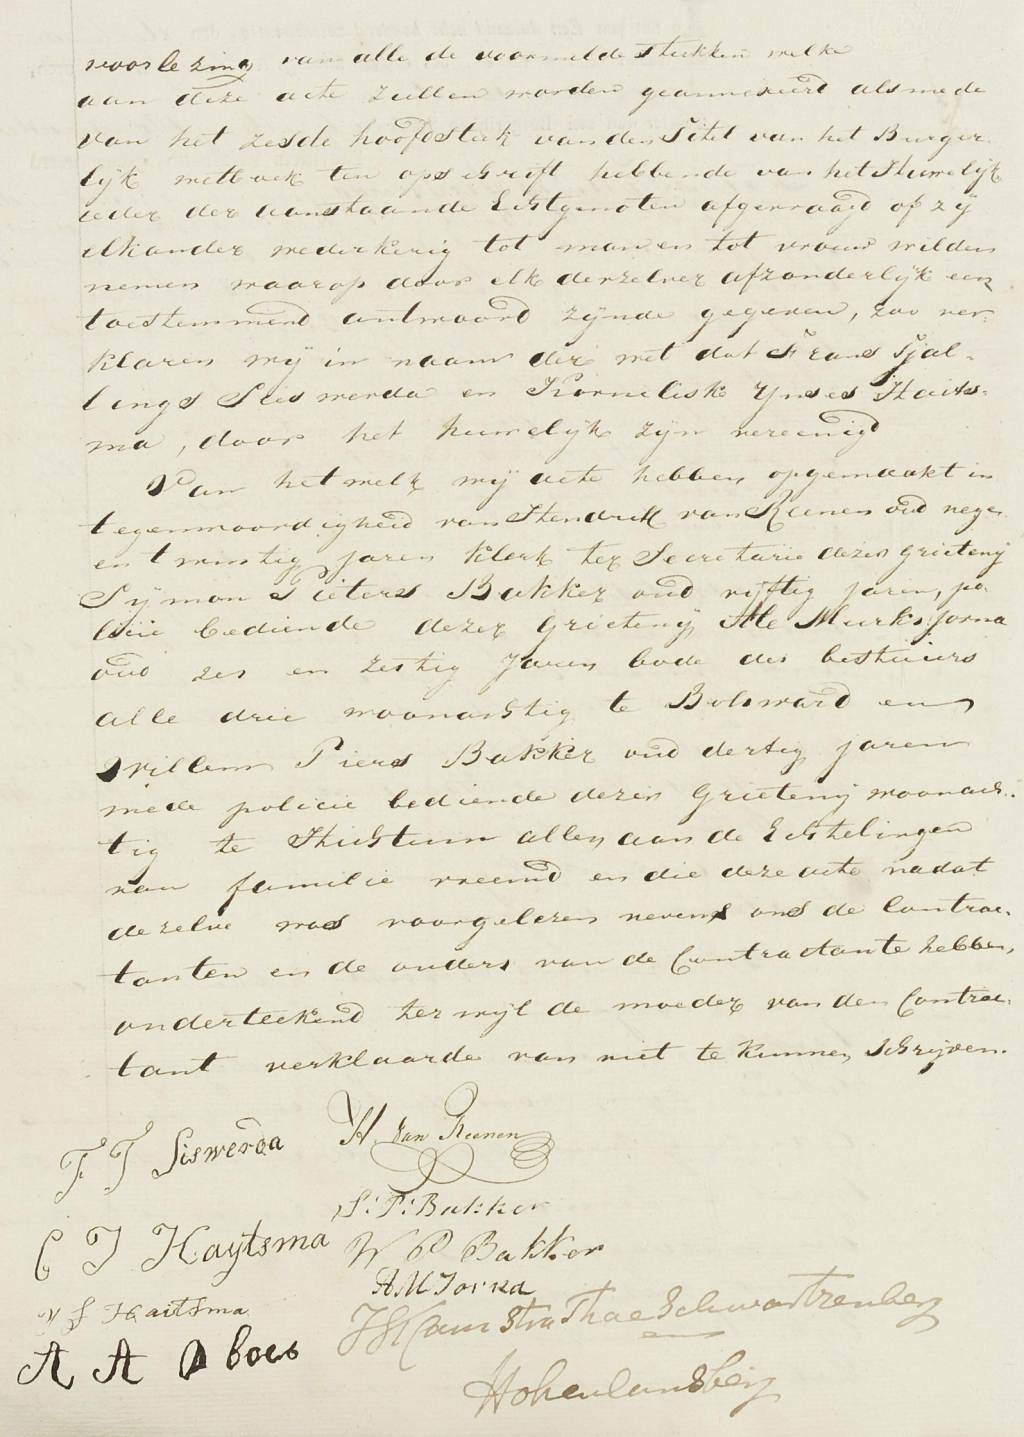 voorlezing van alle de voormelde stukken welke
aan deze acte zullen worden geannexeerd alsmede
van het zesde hoofdstuk van den Titel van het Burger-
lijk wetboek ten opschrift hebbende van het Huwelijk
ieder der aanstaande Echtgenoten afgevraagd of zij
elkander wederkerig tot man en tot vrouw wilden
nemen waarop door elk derzelver afzonderlijk een
toestemmend antwoord zijnde gegeven, zoo ver-
klaren wij in naam der wet dat Frans Tjal-
lings Siswerda en Korneliske Ynses Haits-
ma, door het huwelijk zijn vereenigd
Van het welk wij acte hebben opgemaakt in
tegenwoordigheid van Hendrik van Keenen oud nege
en twintig jaren klerk ter Secretarie dezer grietenij
Sijmon Pieters Bakker oud vijftig jaren, po-
licie bediende dezer Grietenij Ale Murks Jorna
oud zes en zestig Jaren bode des bestuurs
alle drie woonachtig te Bolsward en
Willem Piers Bakker oud dertig jaren
mede policie bediende dezer Grietenij woonach-
tig te Hichtum allen aan de Echtelingen
van familie vreemd en die deze acte nadat
dezelve was voorgelezen nevens ons de Contrac-
tanten en de ouders van de Contractante hebben
onderteekend terwijl de moeder van den Contrac-
tant verklaarde van niet te kunnen schrijven.
F T Siswerda
H. van Keenen
S: P: Bakker
C I Haytsma
W P Bakker
A M Jorna
Y S Haitsma
A A Boes
thoe Schwartzenberg
Hohenlansberg